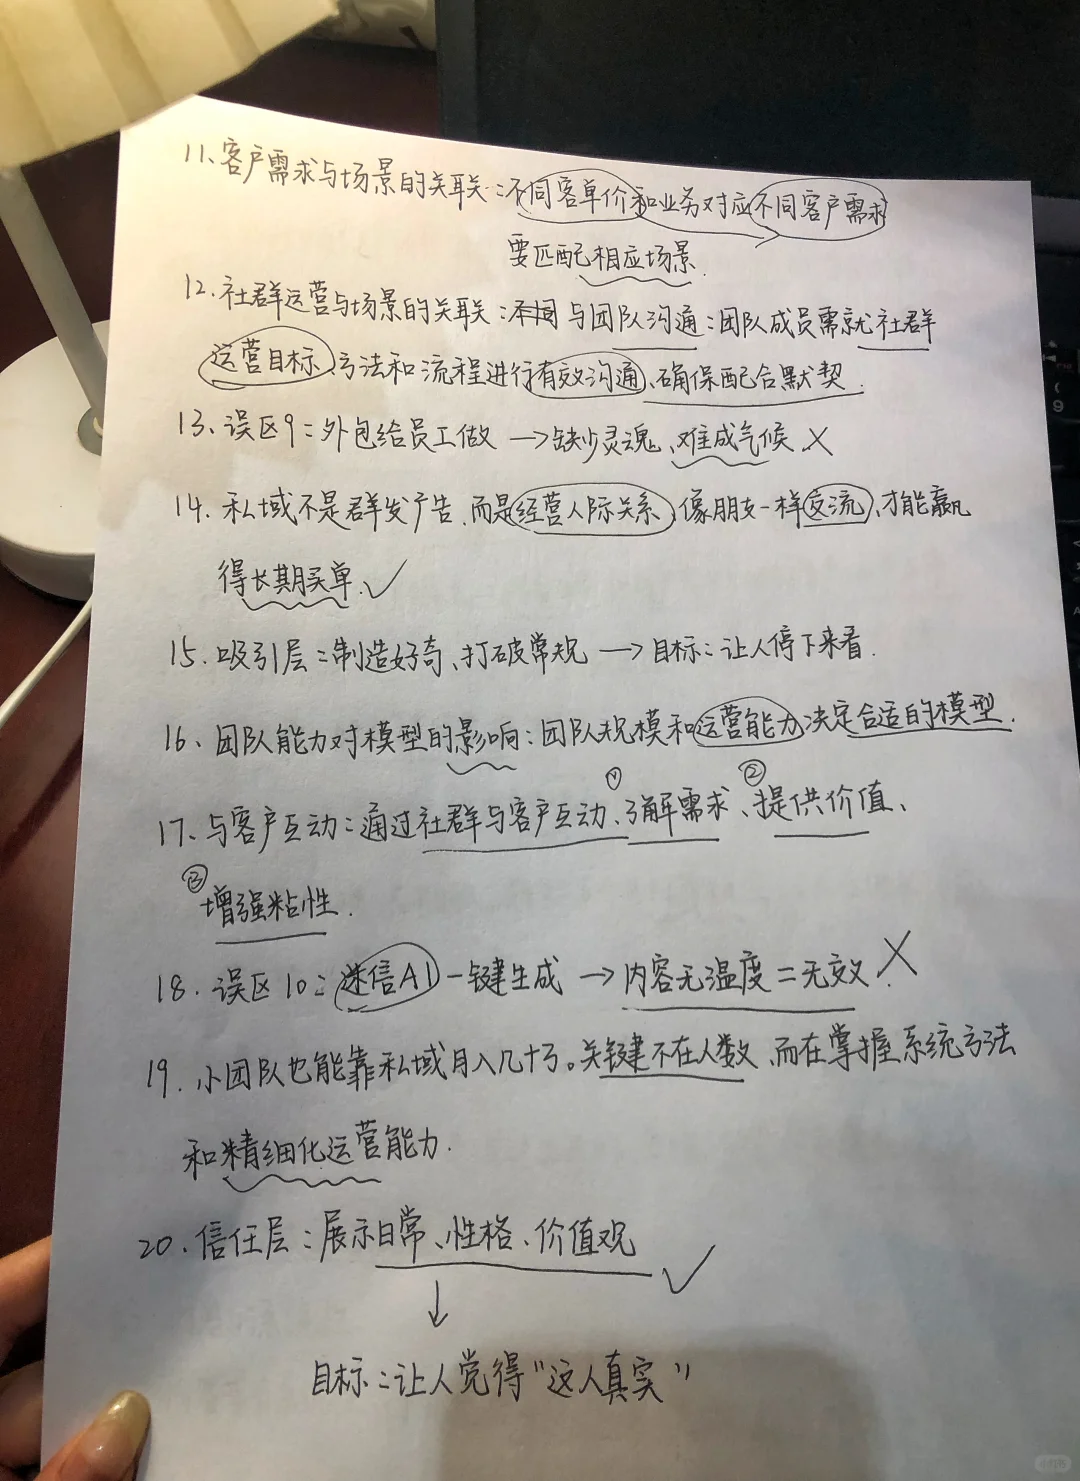 11、客户需求与场景的关联:不同客单价和业务对应不同客户需求
要匹配相应场景.
12.社群运营与场景的关联:与团队沟通:团队成员需就社群
运营目标、方法和流程进行有效沟通、确保配合默契.
13.误区9:外包给员工做→缺少灵魂、难成气候.×
14.私域不是群发广告、而是经营人际关系、像朋友一样交流、才能赢
得长期买单.✓
15.吸引层:制造好奇、打破常规→目标:让人停下来看.
16、团队能力对模型的影响:团队规模和运营能力决定合适的模型.
17、与客户互动:通过社群与客户互动、①了解需求、②提供价值、
③增强粘性.
18.误区10:迷信AI一键生成→内容无温度=无效.×
19.小团队也能靠私域月入几十万。关键不在人数、而在掌握系统方法
和精细化运营能力.
20.信任层:展示日常、性格、价值观✓
↓
目标:让人觉得"这人真实"
小红书